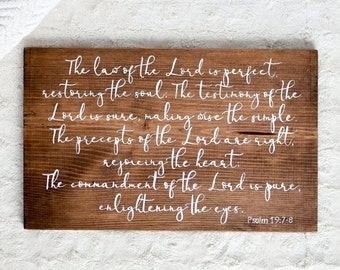 The law of the Lord is perfect,
restoring the soul. The testimony of the
Lord is sure, making wise the simple.
The precepts of the Lord are right,
rejoicing the heart.
The commandment of the Lord is pure,
enlightening the eyes.
Psalm 19:7-8